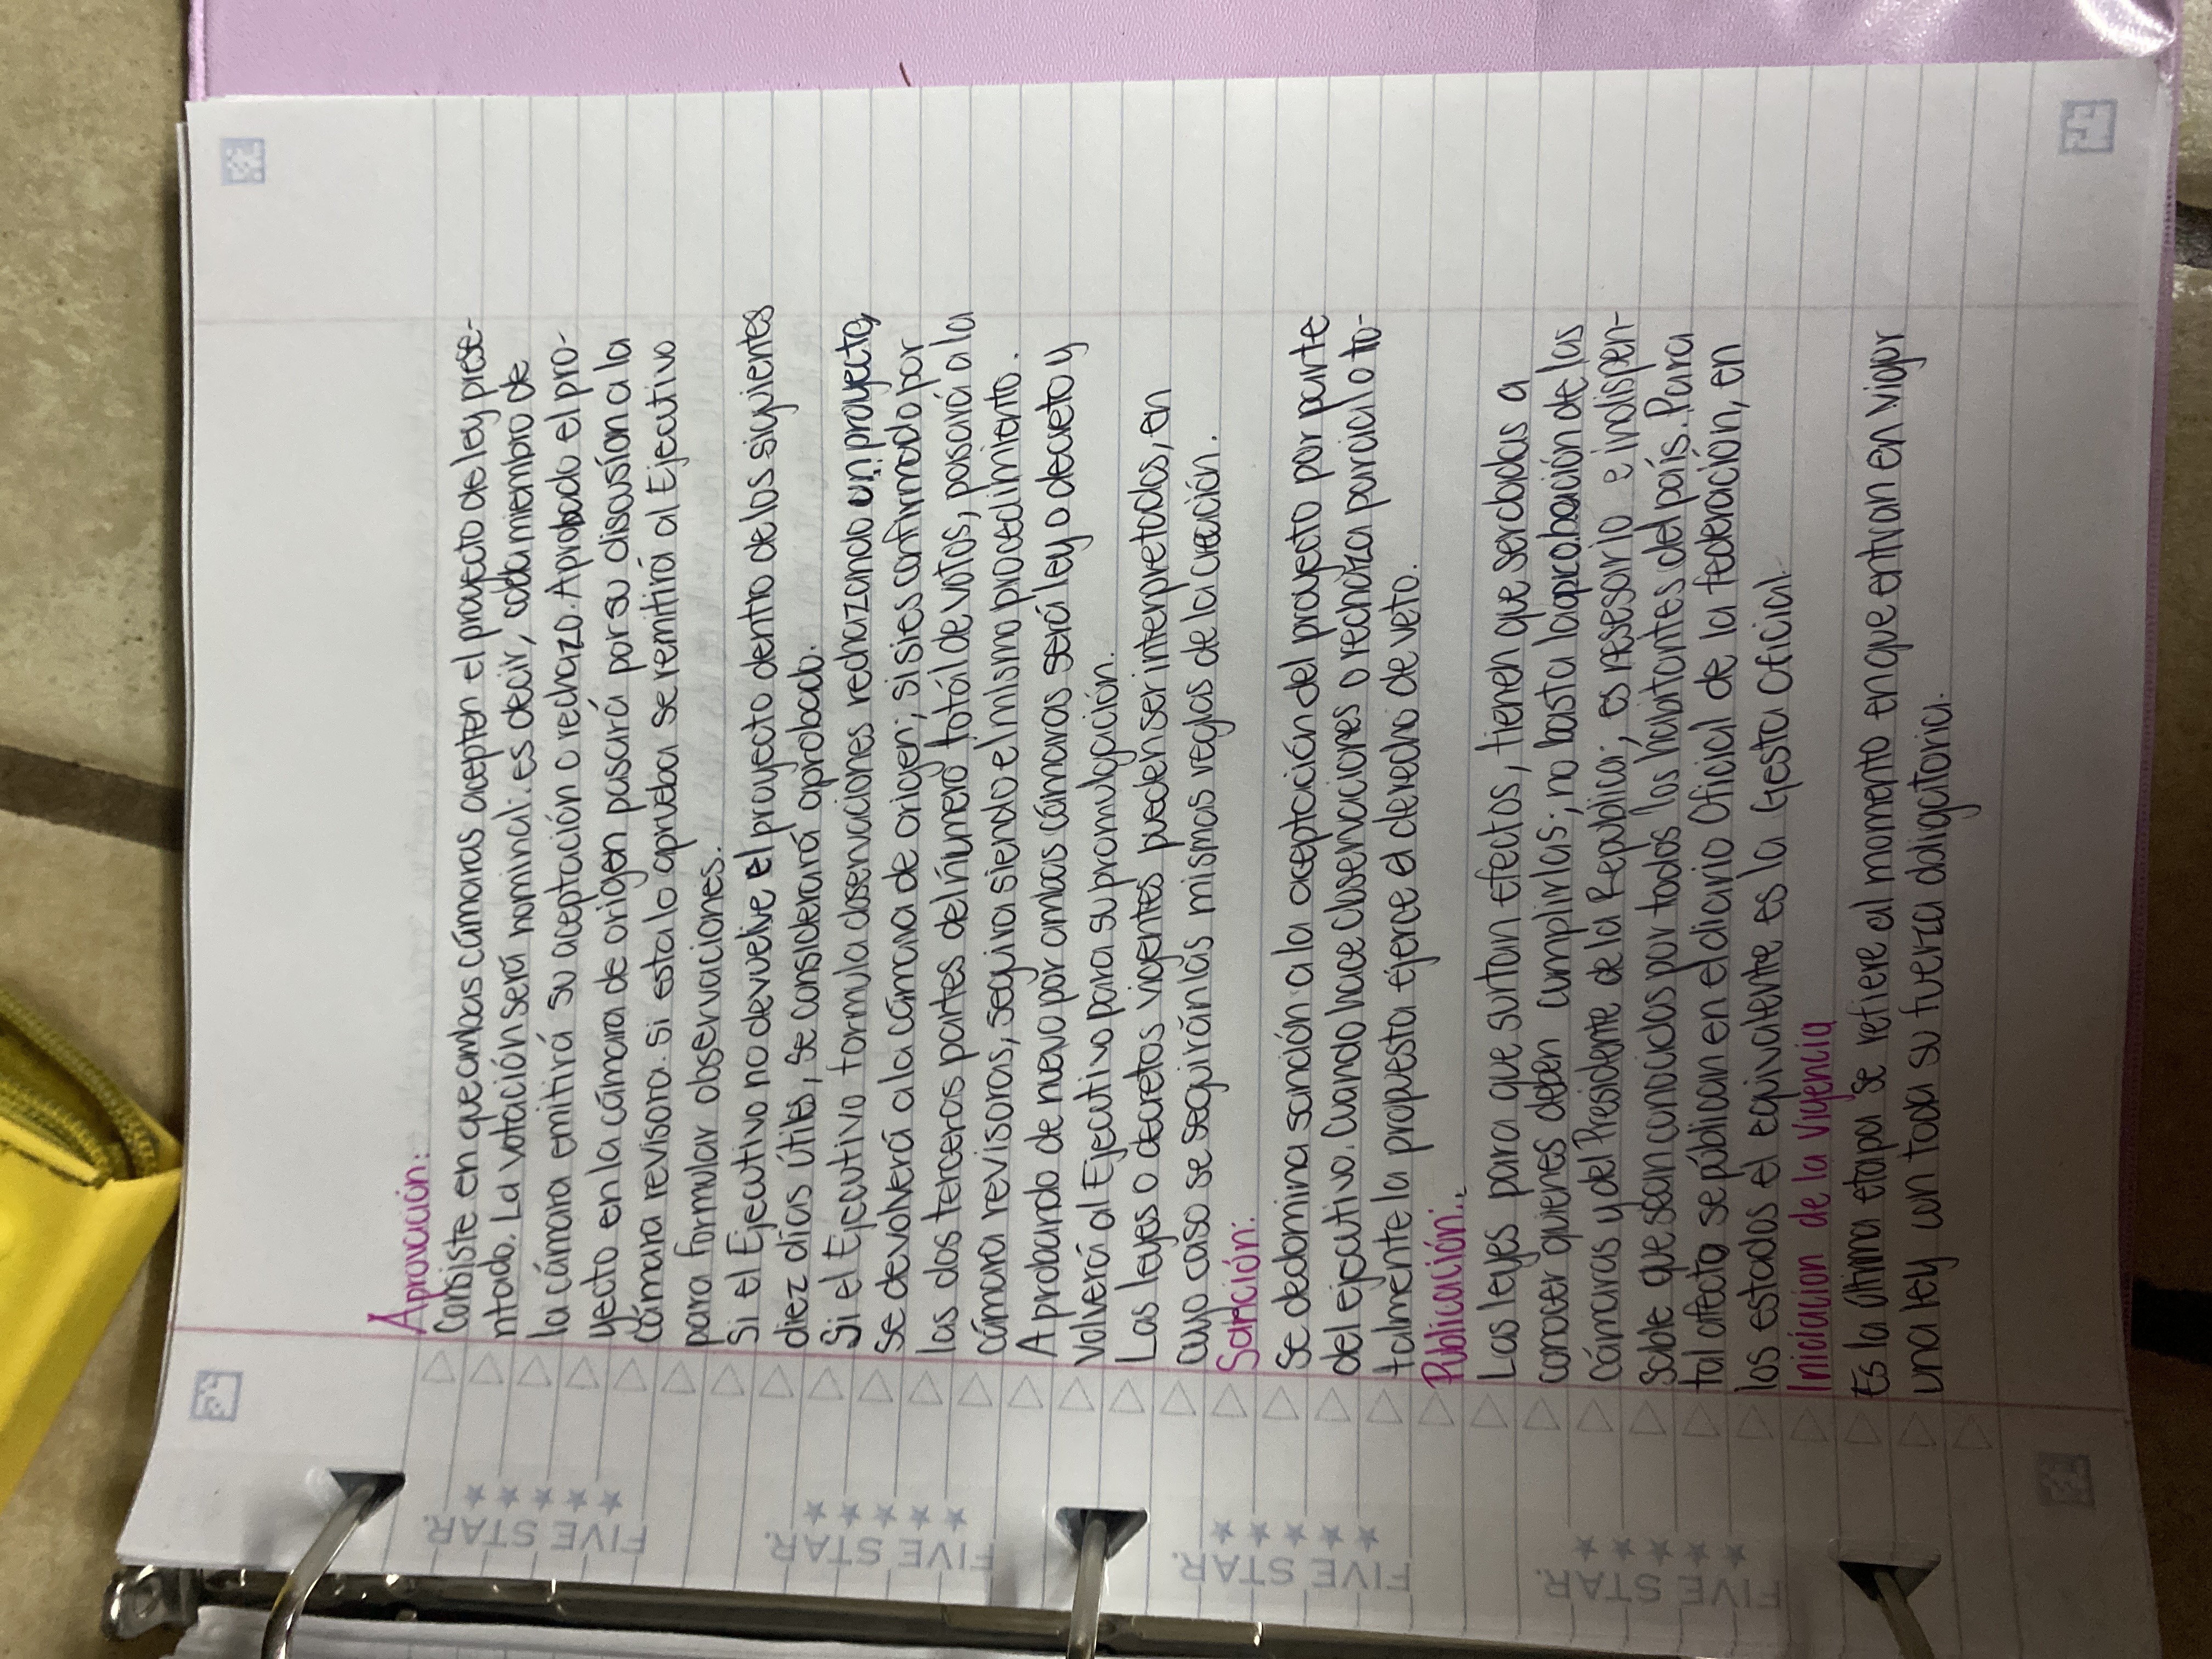 Aprovación:
Consiste en que ambas cámaras acepten el proyecto de ley prese-
ntado. La votación será nominal: es decir, cada miembro de
la cámara emitirá su aceptación o rechazo. Aprobado el pro-
yecto en la cámara de origen pasará por su discusión a la
cámara revisora. si esta lo aprueba se remitirá al Ejecutivo
para formular observaciones.
Si el Ejecutivo no devuelve el proyecto dentro de los siguientes
diez días útiles, se considerará aprobado.
Si el Ejecutivo formula observaciones rechazando un proyecto,
se devolverá a la cámara de origen; si sies confirmado por
las dos terceras partes del número totál de votos, pasará a la
cámara revisoras, seguira siendo el mismo procedimiento.
Aprobando de nuevo por ambas cámaras será ley o decreto y
volverá al Ejecutivo para su promulgación.
Las leyes o decretos vigentes pueden ser interpretados, en
cuyo caso se seguirán las mismas reglas de la creación.
Sanción:
Se dedomina sanción a la aceptación del proyecto por parte
del ejecutivo. Cuando hace observaciones o rechaza parcial o to-
talmente la propuesta ejerce el derecho de veto.
Publicación:
Las leyes para que surtan efectos, tienen que serdadas a
conocer quienes deben cumplirlas; no basta la aprobación de las
cámaras y del Presidente de la Republica; es nesesario e indispen-
sable que sean conocidas por todos los habitantes del país. Para
tal afecto se públican en el diario Oficial de la federación, en
los estados el equivalente es la Gesta Oficial.
Iniciacion de la vigencia
Es la última etapa se refiere al momento en que entran en vigor
una ley con toda su fuerza obligatoria.
FIVE STAR.
FIVE STAR.
FIVE STAR.
FIVE STAR.